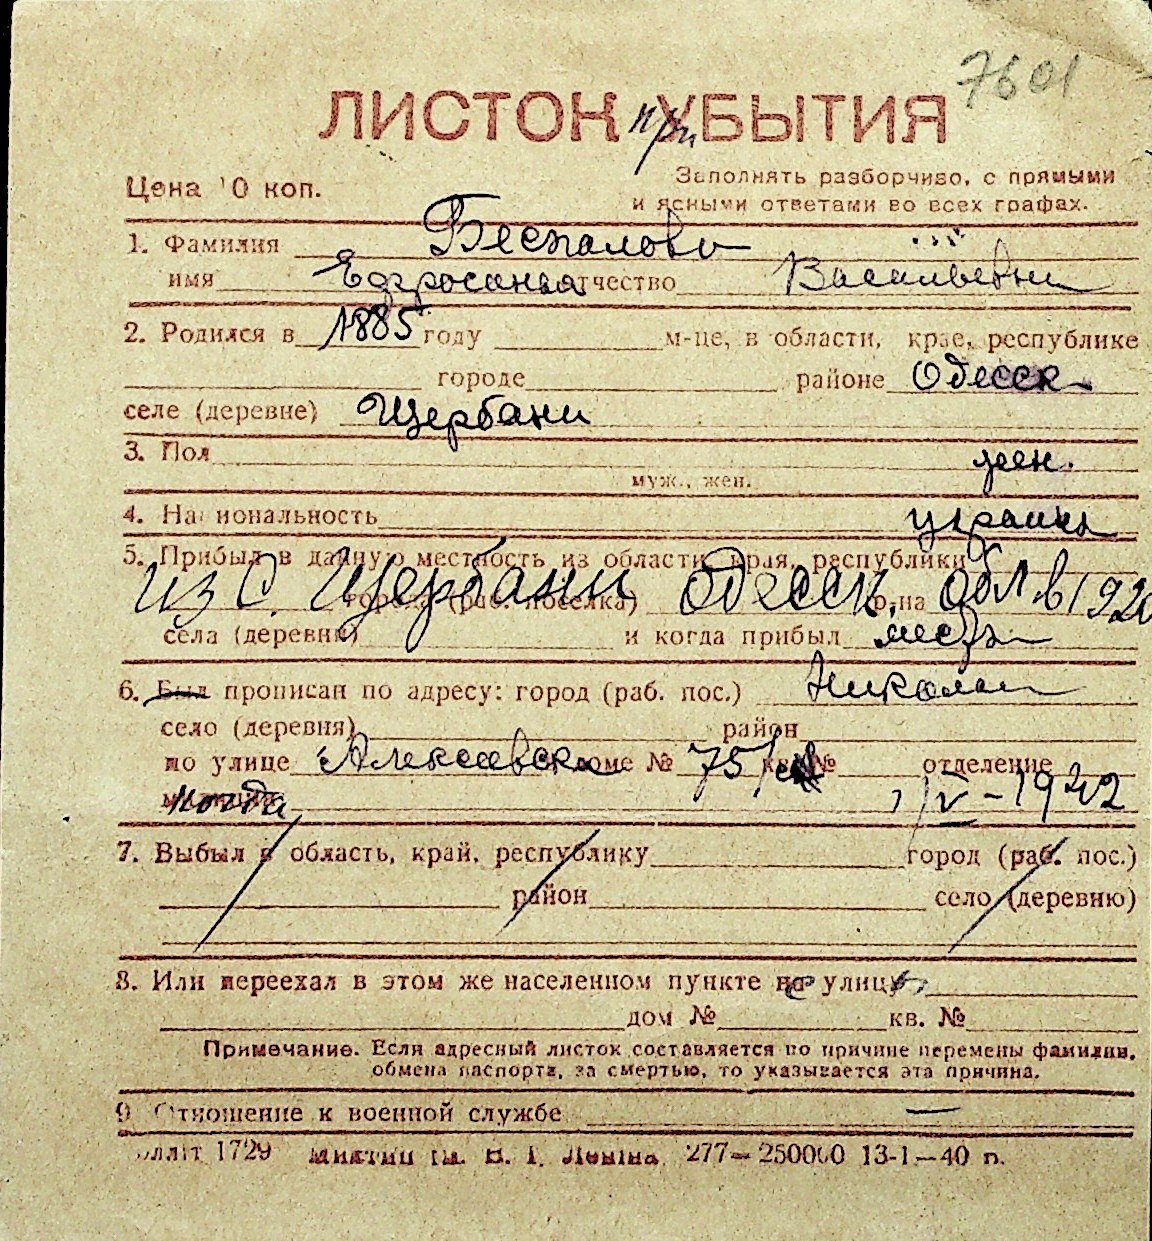 7601
ЛИСТОК при УБЫТИЯ
Цена 10 коп.
Заполнять разборчиво, с прямыми
и ясными ответами во всех графах.
1. Фамилия Беспалова
имя Ефросинья отчество Васильевна
2. Родился в 1885 году м-це, в области, крае, республике
городе районе Одесск
селе (деревне) Щербани
3. Пол жен.
муж., жен.
4. Национальность украинка
5. Прибыл в данную местность из области, края, республики
из с. Щербани Одесск. обл. в 1920
города (раб. поселка) р-на
села (деревни) и когда прибыл местн
6. Был прописан по адресу: город (раб. пос.) Николаев
село (деревня) район
по улице Алексеевск доме № 75/ кв. № отделение
когда 1/V-1942
7. Выбыл в область, край, республику город (раб. пос.)
район село (деревню)
8. Или переехал в этом же населенном пункте на улицу
дом № кв. №
Примечание. Если адресный листок составляется по причине перемены фамилии,
обмена паспорта, за смертью, то указывается эта причина.
9. Отношение к военной службе —
1729 ім. В. І. Леніна 277—250000 13-1—40 п.